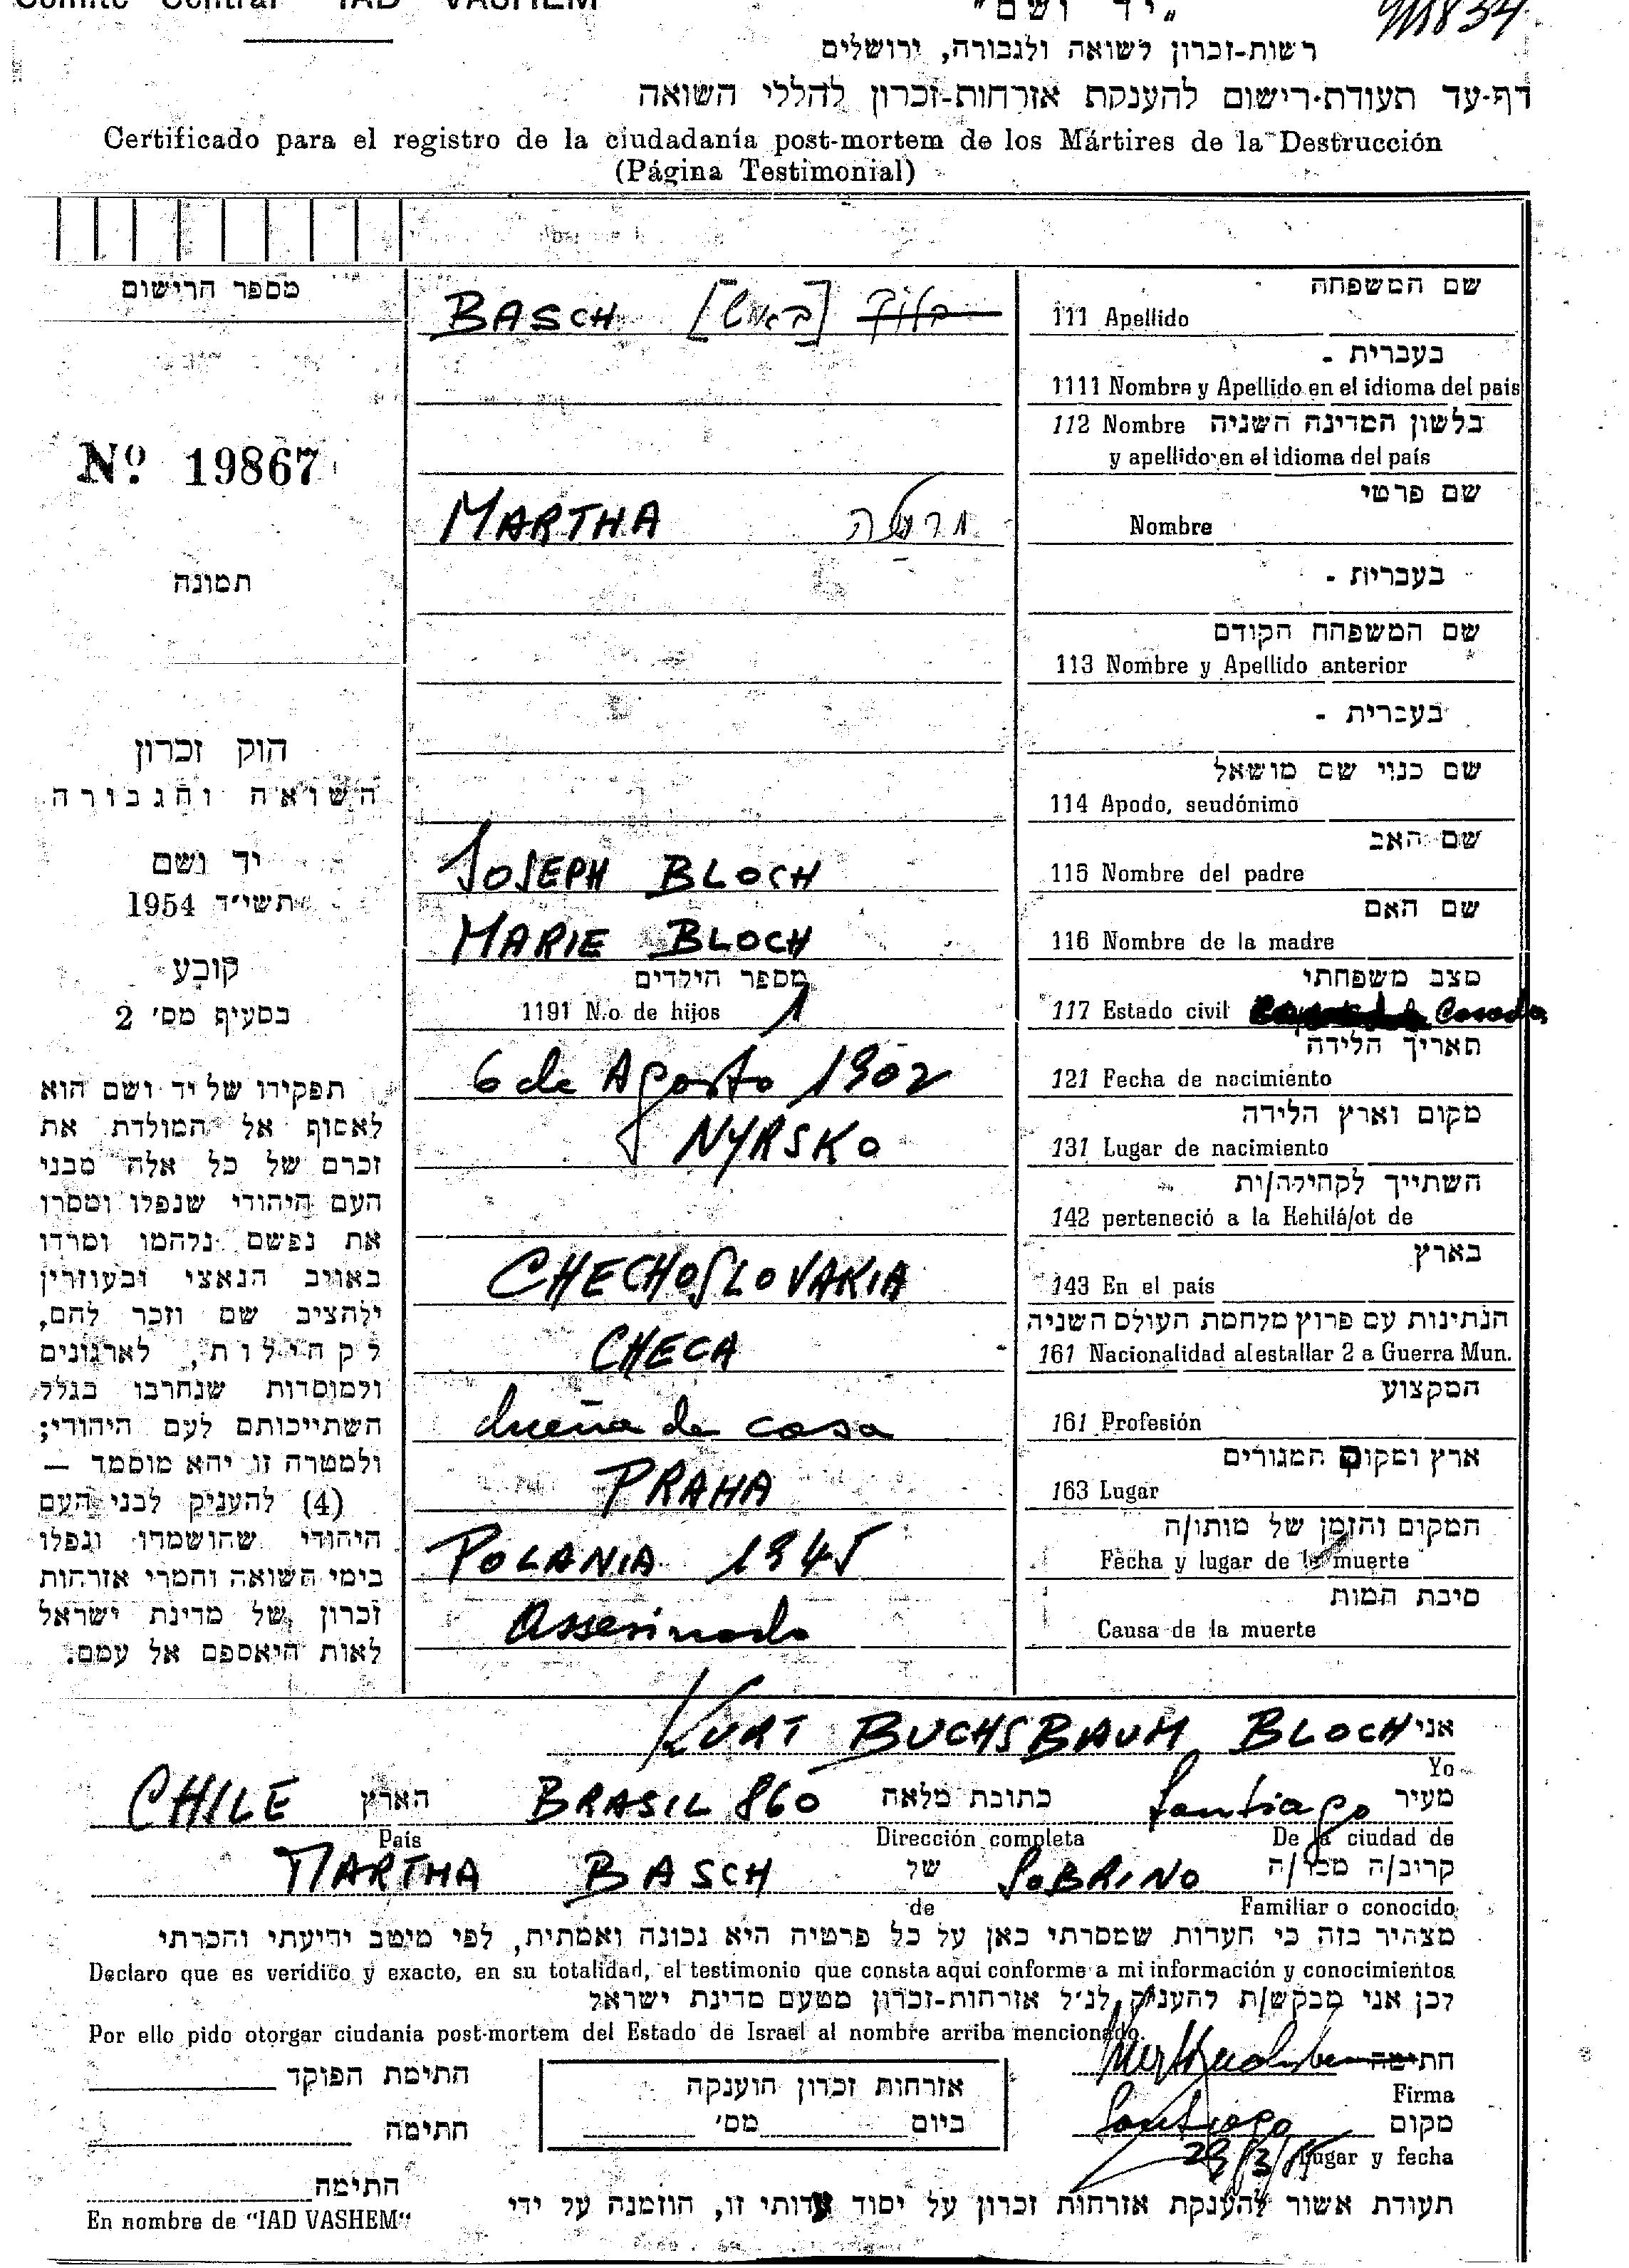 Comité Central "IAD VASHEM"
"יד ושם"
רשות-זכרון לשואה ולגבורה, ירושלים
דף-עד תעודת-רישום להענקת אזרחות-זכרון להללי השואה
Certificado para el registro de la ciudadanía post-mortem de los Mártires de la Destrucción
(Página Testimonial)
מספר הרישום
Nº 19867
תמונה
הוק זכרון
השואה והגבורה
יד ושם
תשי״ד 1954
קובע
בסעיף מס׳ 2
תפקידו של יד ושם הוא
לאסוף אל המולדת את
זכרם של כל אלה מבני
העם היהודי שנפלו ומסרו
את נפשם נלהמו ומרדו
באויב הנאצי ובעוזריו
ולהציב שם וזכר להם,
לקהילות, לארגונים
ולמוסדות שנחרבו בגלל
השתייכותם לעם היהודי;
ולמטרה זו יהא מוסמך —
(4) להעניק לבני העם
היהודי שהושמדו ונפלו
בימי השואה והמרי אזרחות
זכרון של מדינת ישראל
לאות היאספם אל עמם.
שם המשפחה
111 Apellido BASCH [באש] בלוך
בעברית -
1111 Nombre y Apellido en el idioma del pais
112 Nombre בלשון המדינה השניה
y apellido en el idioma del país
שם פרטי
Nombre MARTHA מרטה
בעברית -
שם המשפחה הקודם
113 Nombre y Apellido anterior
בעברית -
שם כנוי שם מושאל
114 Apodo, seudónimo
שם האב
115 Nombre del padre JOSEPH BLOCH
שם האם
116 Nombre de la madre MARIE BLOCH
מצב משפחתי
117 Estado civil Casada
מספר הילדים
1191 N.o de hijos 1
תאריך הלידה
121 Fecha de nacimiento 6 de Agosto 1902
מקום וארץ הלידה
131 Lugar de nacimiento NYRSKO
השתייך לקהילה/ות
142 perteneció a la Kehilá/ot de
בארץ
143 En el pais CHECHOSLOVAKIA
הנתינות עם פרוץ מלחמת העולם השניה
161 Nacionalidad al estallar 2 a Guerra Mun. CHECA
המקצוע
161 Profesión dueña de casa
ארץ ומקום המגורים
163 Lugar PRAHA
המקום והזמן של מותו/ה
Fecha y lugar de la muerte POLANIA 1945
סיבת המות
Causa de la muerte assesinada
אני KURT BUCHSBAUM BLOCH
Yo
מעיר Santiago כתובת מלאה BRASIL 860 הארץ CHILE
De la ciudad de Dirección completa País
קרוב/ה מכר/ה SOBRINO של MARTHA BASCH
Familiar o conocido de
מצהיר בזה כי העדות שמסרתי כאן על כל פרטיה היא נכונה ואמתית, לפי מיטב ידיעתי והכרתי
Declaro que es verídico y exacto, en su totalidad, el testimonio que consta aqui conforme a mi información y conocimientos
לכן אני מבקש/ת להעניק לנ״ל אזרחות-זכרון מטעם מדינת ישראל
Por ello pido otorgar ciudania post-mortem del Estado de Israel al nombre arriba mencionado.
התימה
Firma
מקום Santiago
Lugar y fecha
אזרחות זכרון הוענקה
ביום מס׳
התימת הפוקד
התימה
התימה
En nombre de "IAD VASHEM"
תעודת אשור להענקת אזרחות זכרון על יסוד עדותי זו, הוזמנה על ידי